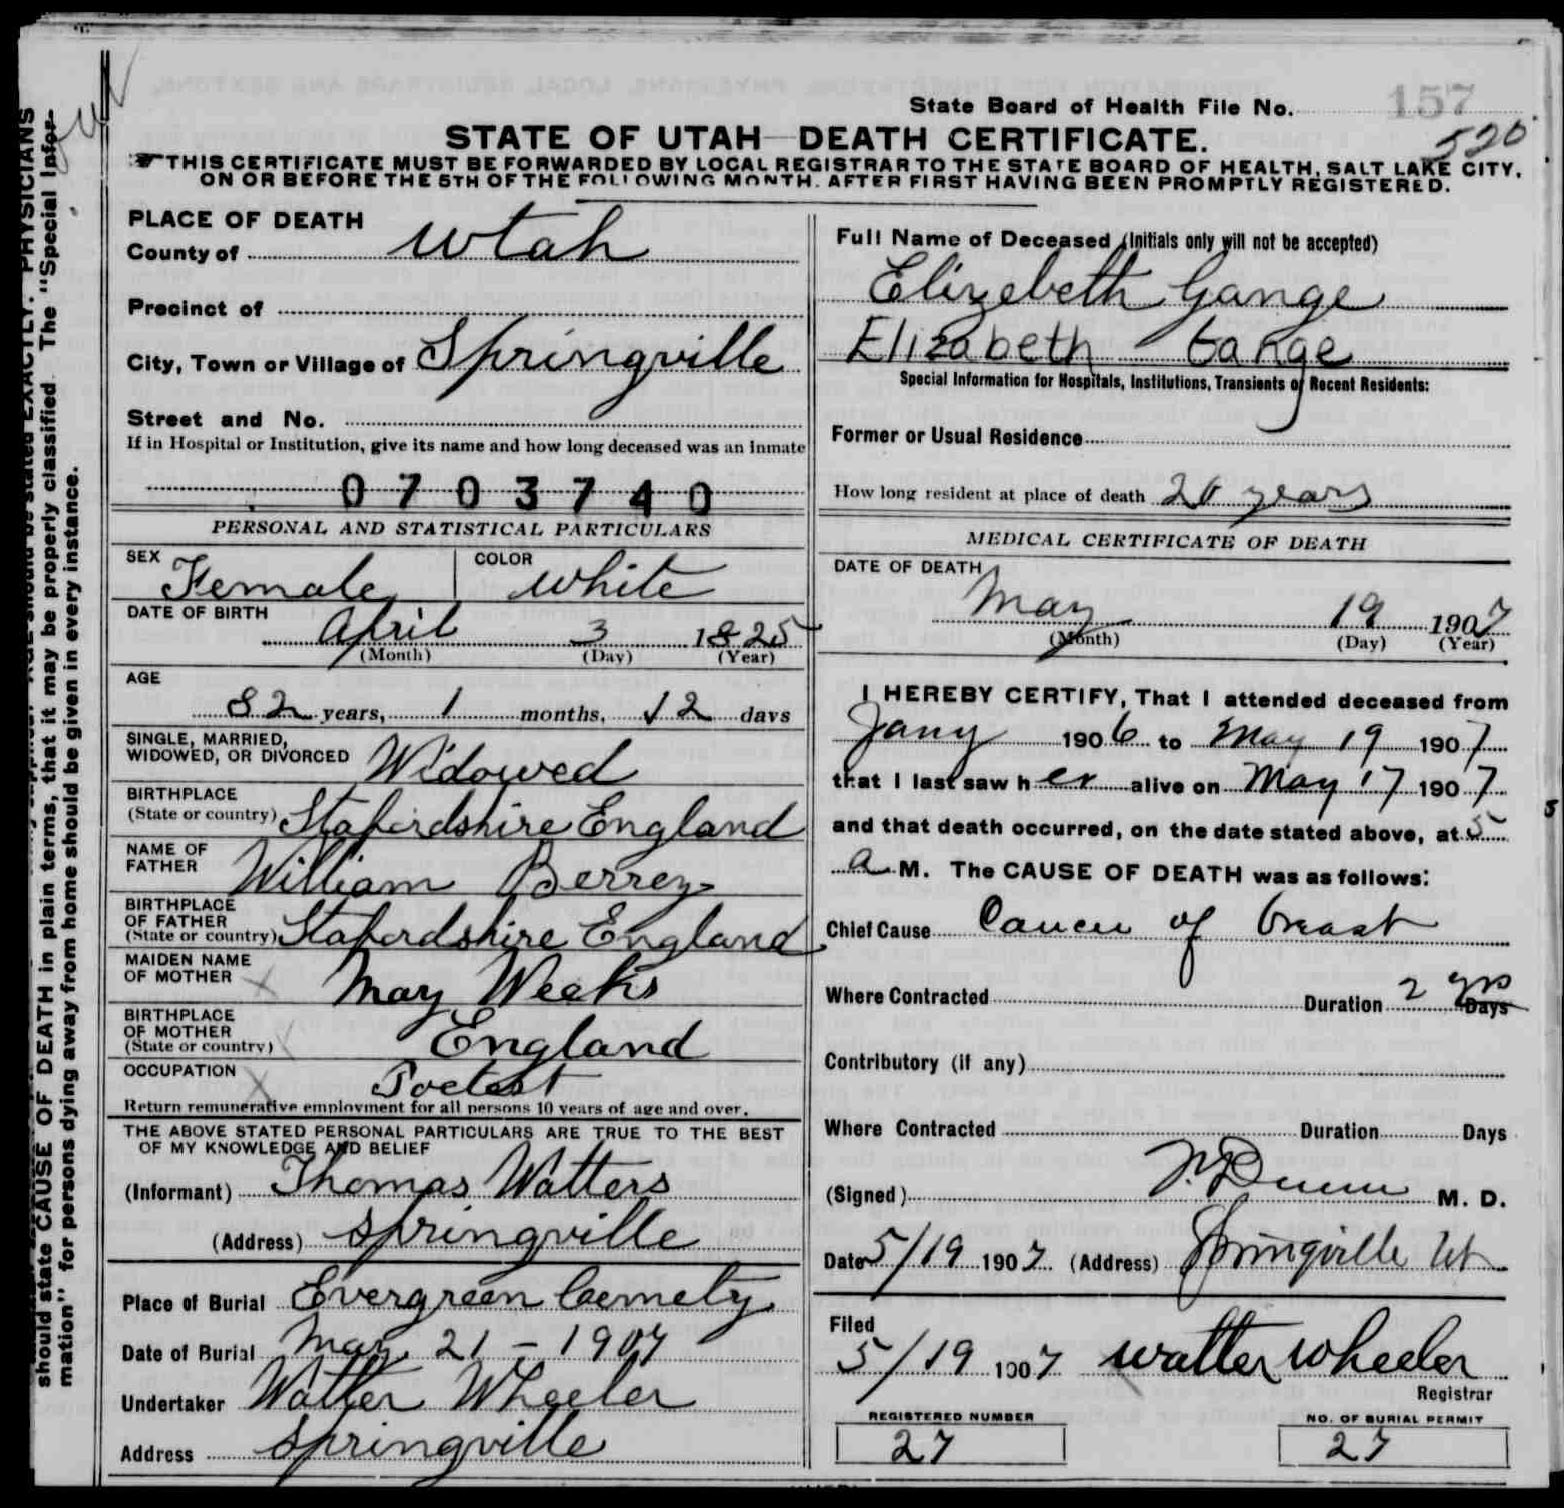 157
State Board of Health File No.
520
STATE OF UTAH—DEATH CERTIFICATE.
THIS CERTIFICATE MUST BE FORWARDED BY LOCAL REGISTRAR TO THE STATE BOARD OF HEALTH, SALT LAKE CITY,
ON OR BEFORE THE 5TH OF THE FOLLOWING MONTH, AFTER FIRST HAVING BEEN PROMPTLY REGISTERED.
PLACE OF DEATH
County of Utah
Precinct of
City, Town or Village of Springville
Street and No.
If in Hospital or Institution, give its name and how long deceased was an inmate
0703740
PERSONAL AND STATISTICAL PARTICULARS
SEX Female COLOR White
DATE OF BIRTH
April 3 1825
(Month) (Day) (Year)
AGE
82 years, 1 months, 12 days
SINGLE, MARRIED,
WIDOWED, OR DIVORCED Widowed
BIRTHPLACE
(State or country) Stafordshire England
NAME OF
FATHER William Berrey
BIRTHPLACE
OF FATHER
(State or country) Stafordshire England
MAIDEN NAME
OF MOTHER Mary Weeks
BIRTHPLACE
OF MOTHER
(State or country) England
OCCUPATION Poetest
Return remunerative employment for all persons 10 years of age and over.
THE ABOVE STATED PERSONAL PARTICULARS ARE TRUE TO THE BEST
OF MY KNOWLEDGE AND BELIEF
(Informant) Thomas Watters
(Address) Springville
Place of Burial Evergreen Cemety
Date of Burial May 21 - 1907
Undertaker Walter Wheeler
Address Springville
Full Name of Deceased (Initials only will not be accepted)
Elizebeth Gange
Elizabeth Gange
Special Information for Hospitals, Institutions, Transients or Recent Residents:
Former or Usual Residence
How long resident at place of death years
MEDICAL CERTIFICATE OF DEATH
DATE OF DEATH
May 19 1907
(Month) (Day) (Year)
I HEREBY CERTIFY, That I attended deceased from
Jany 1906 to May 19 1907
that I last saw her alive on May 17 1907
and that death occurred, on the date stated above, at 5
a M. The CAUSE OF DEATH was as follows:
Chief Cause Cancer of breast
Where Contracted Duration 2 yrs Days
Contributory (if any)
Where Contracted Duration Days
(Signed) Dunn M. D.
Date 5/19 1907 (Address) Springville Ut
Filed
5/19 1907 Walter Wheeler
Registrar
REGISTERED NUMBER
27
NO. OF BURIAL PERMIT
27
should state CAUSE OF DEATH in plain terms, that it may be properly classified The "Special Infor-
mation" for persons dying away from home should be given in every instance.